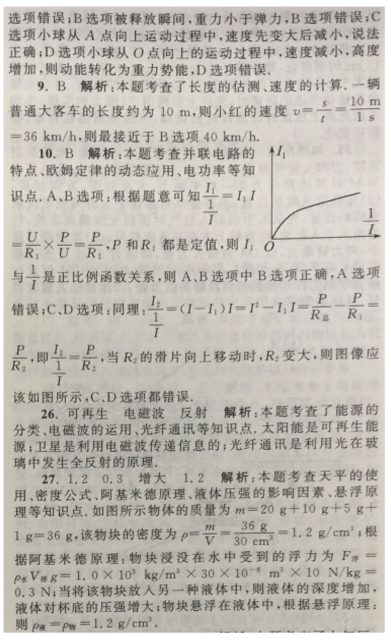 选项错误;B选项被释放瞬间,重力小于弹力,B选项错误;C
选项小球从A点向上运动过程中,速度先变大后减小,说法
正确;D选项小球从O点向上的运动过程中,速度减小,高度
增加,则动能转化为重力势能,D选项错误.
9. B 解析:本题考查了长度的估测、速度的计算.一辆
普通大客车的长度约为10 m,则小红的速度 v=s/t=10 m/1 s
=36 km/h,则最接近于B选项40 km/h.
10. B 解析:本题考查并联电路的
特点、欧姆定律的动态应用、电功率等知
识点.A、B选项:根据题意可知 I₁/(1/I)=I₁I
=U/R₁×P/U=P/R₁,P和R₁都是定值,则I₁
I₁
1/I
O
与1/I是正比例函数关系,则A、B选项中B选项正确,A选项
错误;C、D选项:同理:I₂/(1/I)=(I-I₁)I=I²-I₁I=P/R总-P/R₁=
P/R₂,即I₂/(1/I)=P/R₂,当R₂的滑片向上移动时,R₂变大,则图像应
该如图所示,C、D选项都错误.
26. 可再生 电磁波 反射 解析:本题考查了能源的
分类、电磁波的运用、光纤通讯等知识点.太阳能是可再生能
源;卫星是利用电磁波传递信息的;光纤通讯是利用光在玻
璃中发生全反射的原理.
27. 1.2 0.3 增大 1.2 解析:本题考查天平的使
用、密度公式、阿基米德原理、液体压强的影响因素、悬浮原
理等知识点.如图所示物体的质量为m=20 g+10 g+5 g+
1 g=36 g,该物块的密度为ρ=m/V=36 g/30 cm³=1.2 g/cm³;根
据阿基米德原理:物块浸没在水中受到的浮力为F浮=
ρ水V排g=1.0×10³ kg/m³×30×10⁻⁶ m³×10 N/kg=
0.3 N;当将该物块放入另一种液体中,则液体的深度增加,
液体对杯底的压强增大;物块悬浮在液体中,根据悬浮原理:
则ρ液=ρ物=1.2 g/cm³.